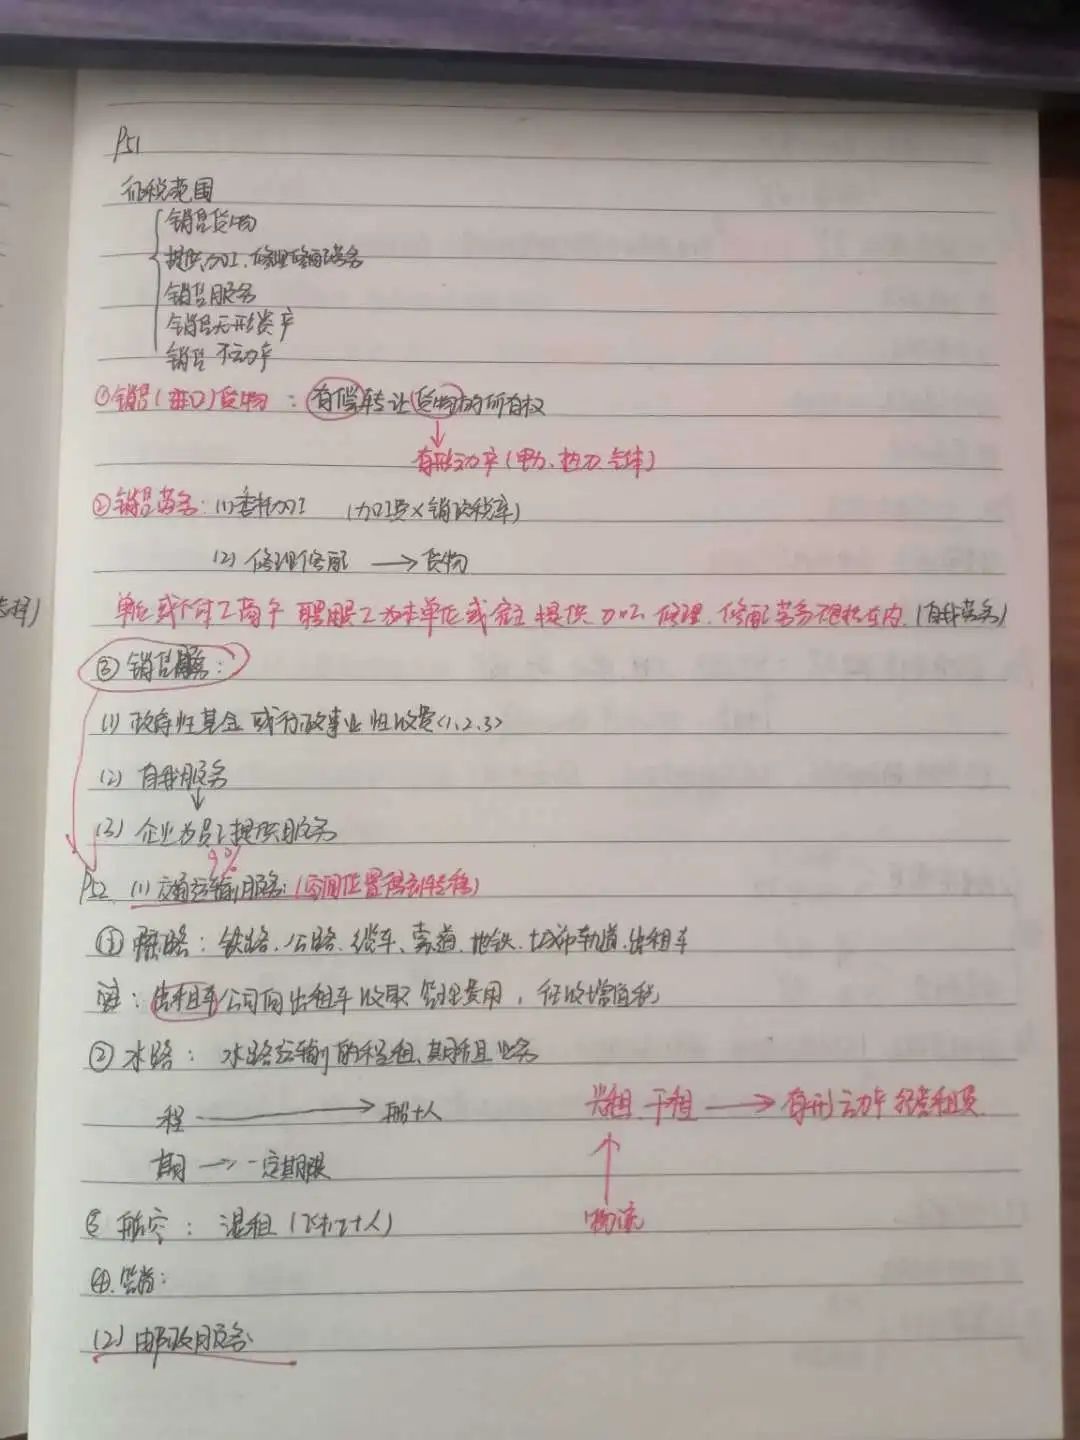 P51
征税范围
销售货物
提供加工、修理修配劳务
销售服务
销售无形资产
销售不动产
①销售(进口)货物：有偿转让货物的所有权
有形动产(电力、热力、气体)
②销售劳务：(1)委托加工 (加工费×销项税率)
(2)修理修配 → 货物
单位或个体工商户聘用员工为本单位或雇主提供加工、修理、修配劳务不包括在内.(自我劳务)
③销售服务：
(1)政府性基金或行政事业性收费<1.2.3>
(2)自我服务
↓
(3)企业为员工提供服务
9%
P52 (1)交通运输服务：(空间位置得到转移)
①陆路：铁路、公路、缆车、索道、地铁、城市轨道、出租车
注：出租车公司向出租车收取管理费用，征收增值税
②水路：水路运输的程租、期租业务
程 → 船+人 光租 干租 → 有形动产经营租赁
期 → 一定期限
③航空：湿租(飞机+人) 物流
④.管道：
(2)邮政服务